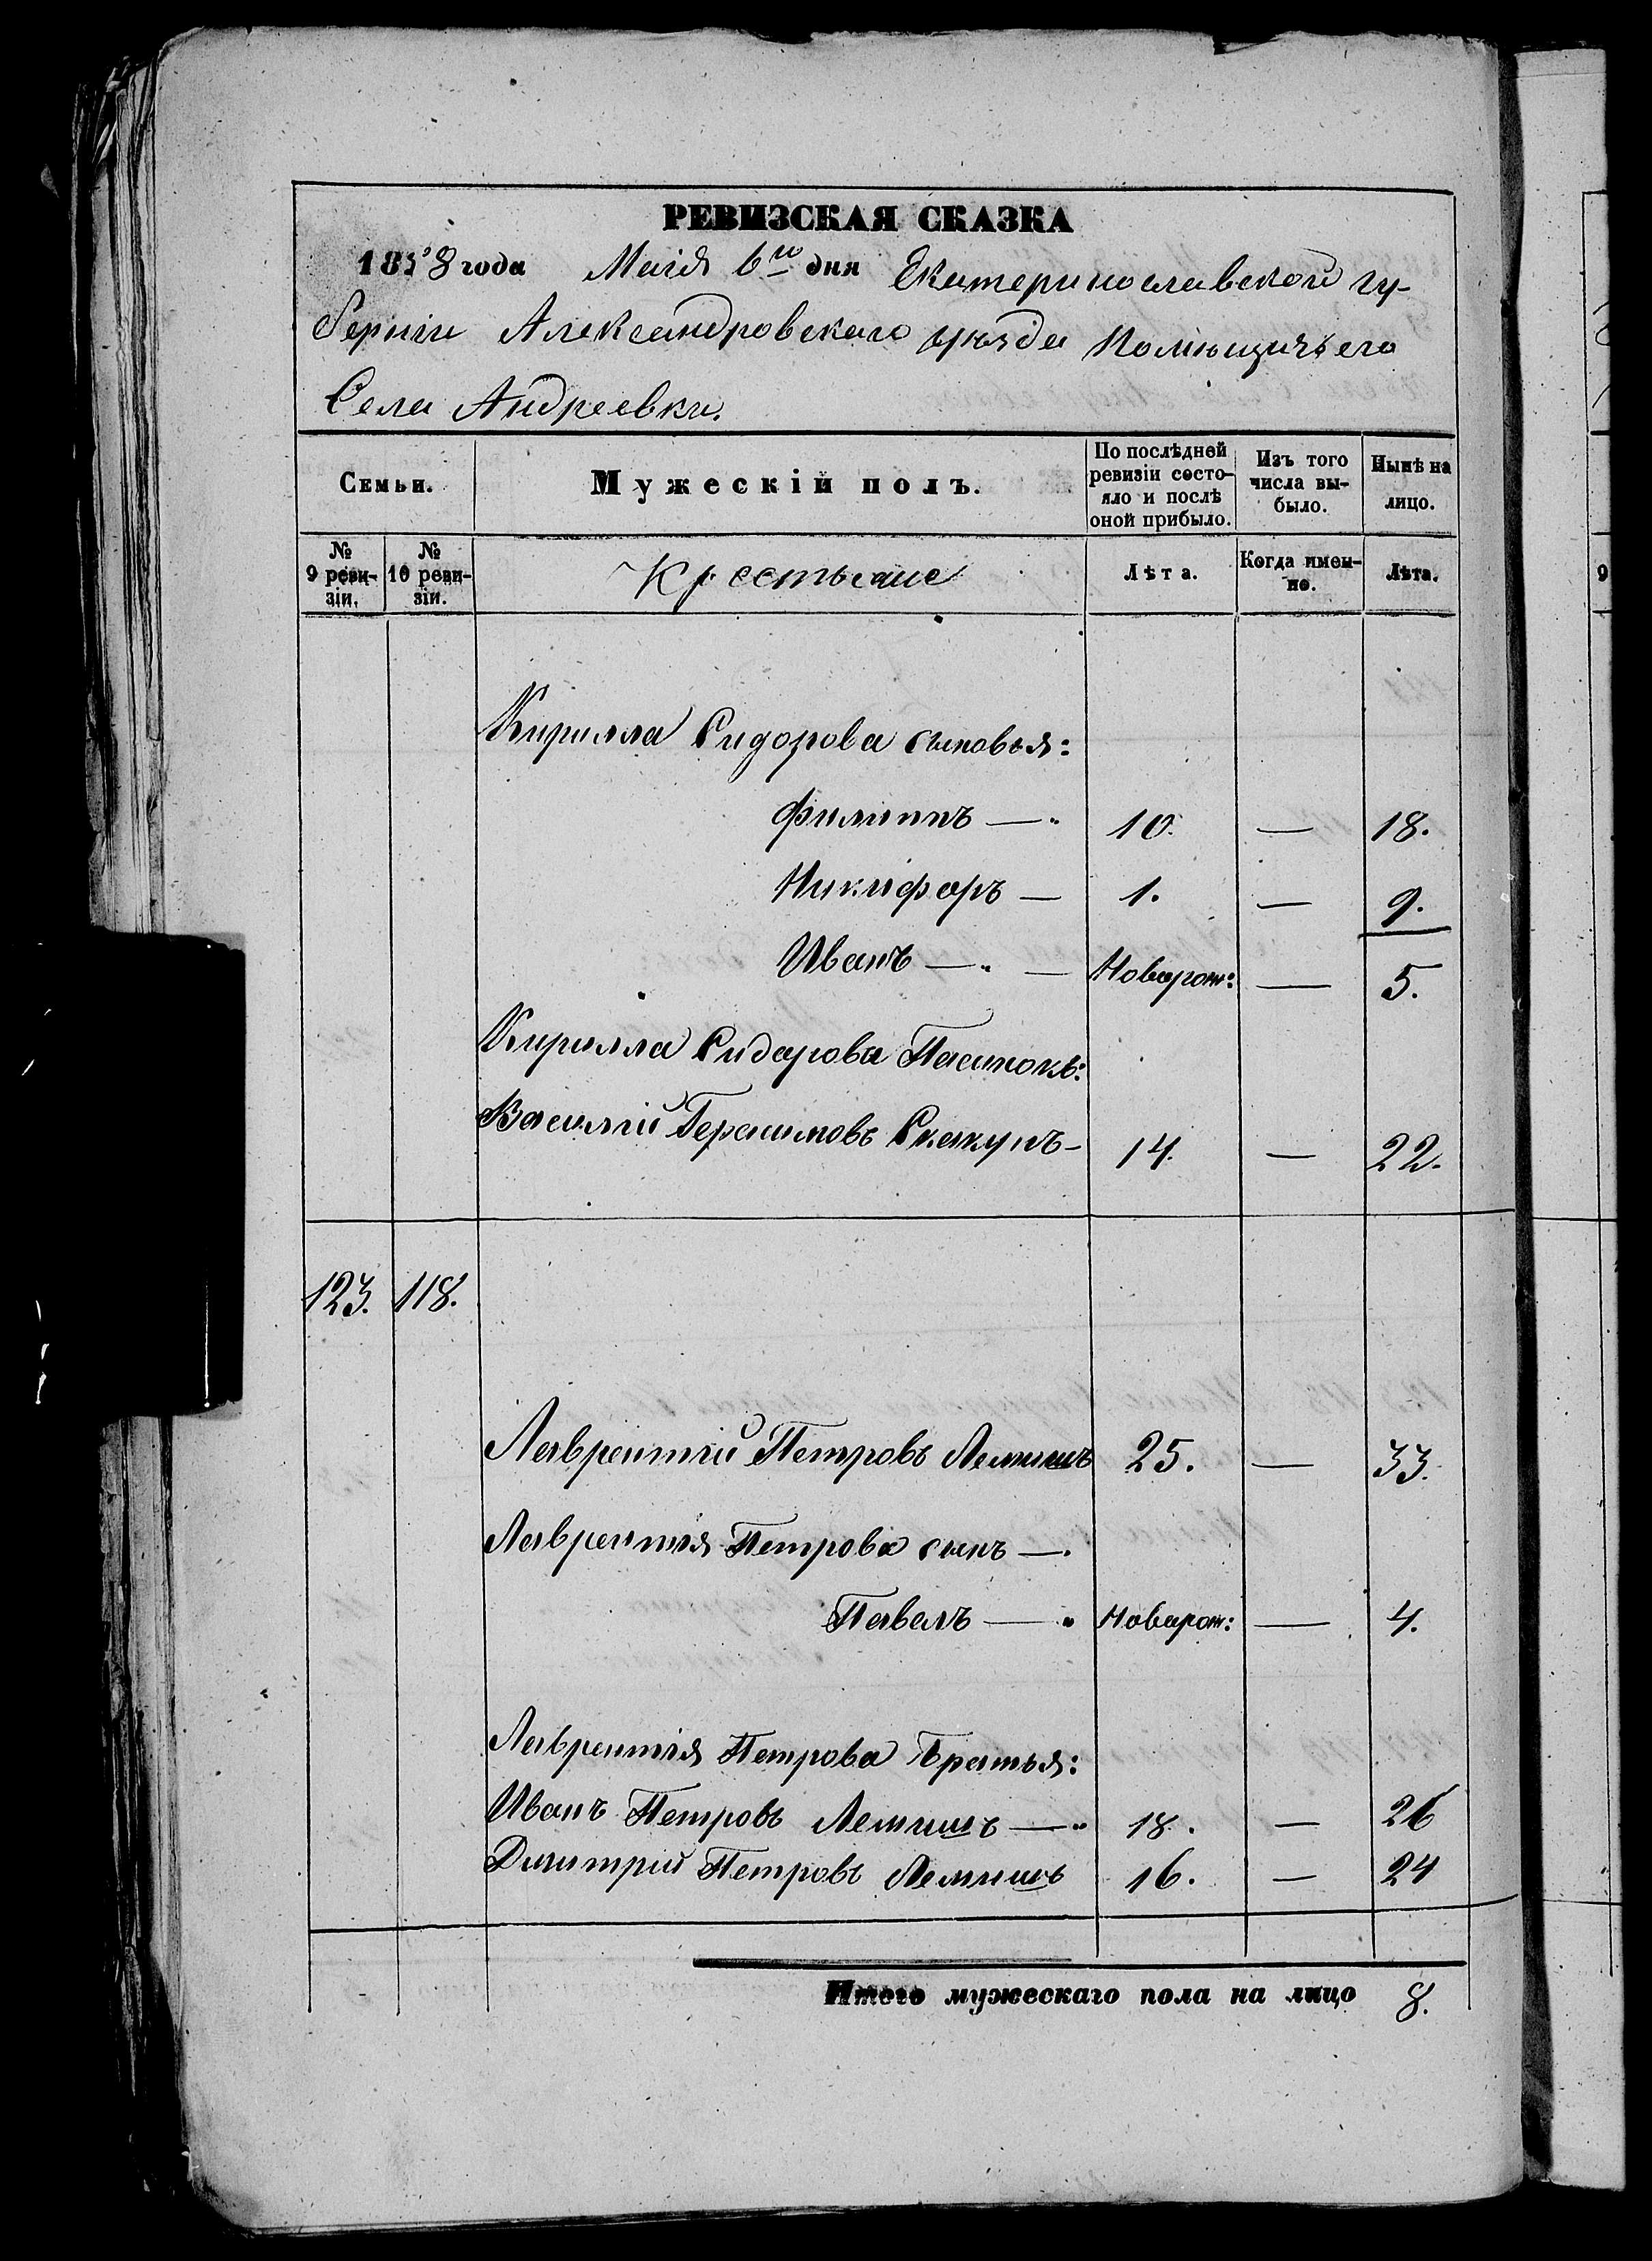 РЕВИЗСКАЯ СКАЗКА
1858 года Маія 6го дня Екатеринославской гу-
берніи Александровскаго уѣзда Помѣщичьего
Села Андреевки.
Семьи.
Мужескій полъ.
По послѣдней ревизіи состо-
яло и послѣ оной прибыло.
Изъ того числа вы-
было.
Нынѣ на лицо.
№ 9 реви-
зіи.
№ 10 реви-
зіи.
Крестьяне
Лѣта.
Когда имен-
но.
Лѣта.
Кирилла Сидорова сыновья:
Филиппъ — 10. — 18.
Никифоръ — 1. — 9.
Иванъ — — Новорож: — 5.
Кирилла Сидорова Пасынокъ:
Василій Герасимовъ Скакунъ - 14. — 22.
123. 118.
Лаврентій Петровъ Лемишъ 25. — 33.
Лаврентія Петрова сынъ —.
Павелъ — Новорож: — 4.
Лаврентія Петрова братья:
Иванъ Петровъ Лемишъ — 18. — 26
Димитрій Петровъ Лемишъ 16. — 24
Итого мужескаго пола на лицо 8.
9